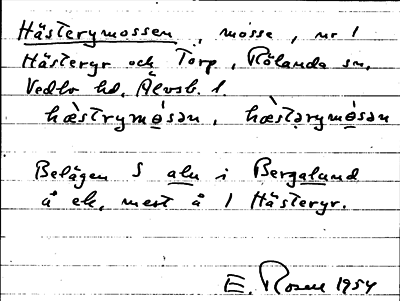 Hästerymossen, mosse, nr 1
Hästeryr och Torp, Rölanda sn,
Vedbo hd, Älvsb. l.
hæ̀strymǫ́sən, hæ̀stərymǫ́sən
Belägen S alu i Bergalund
å ek, mest å 1 Hästeryr.
E. Rosell 1954